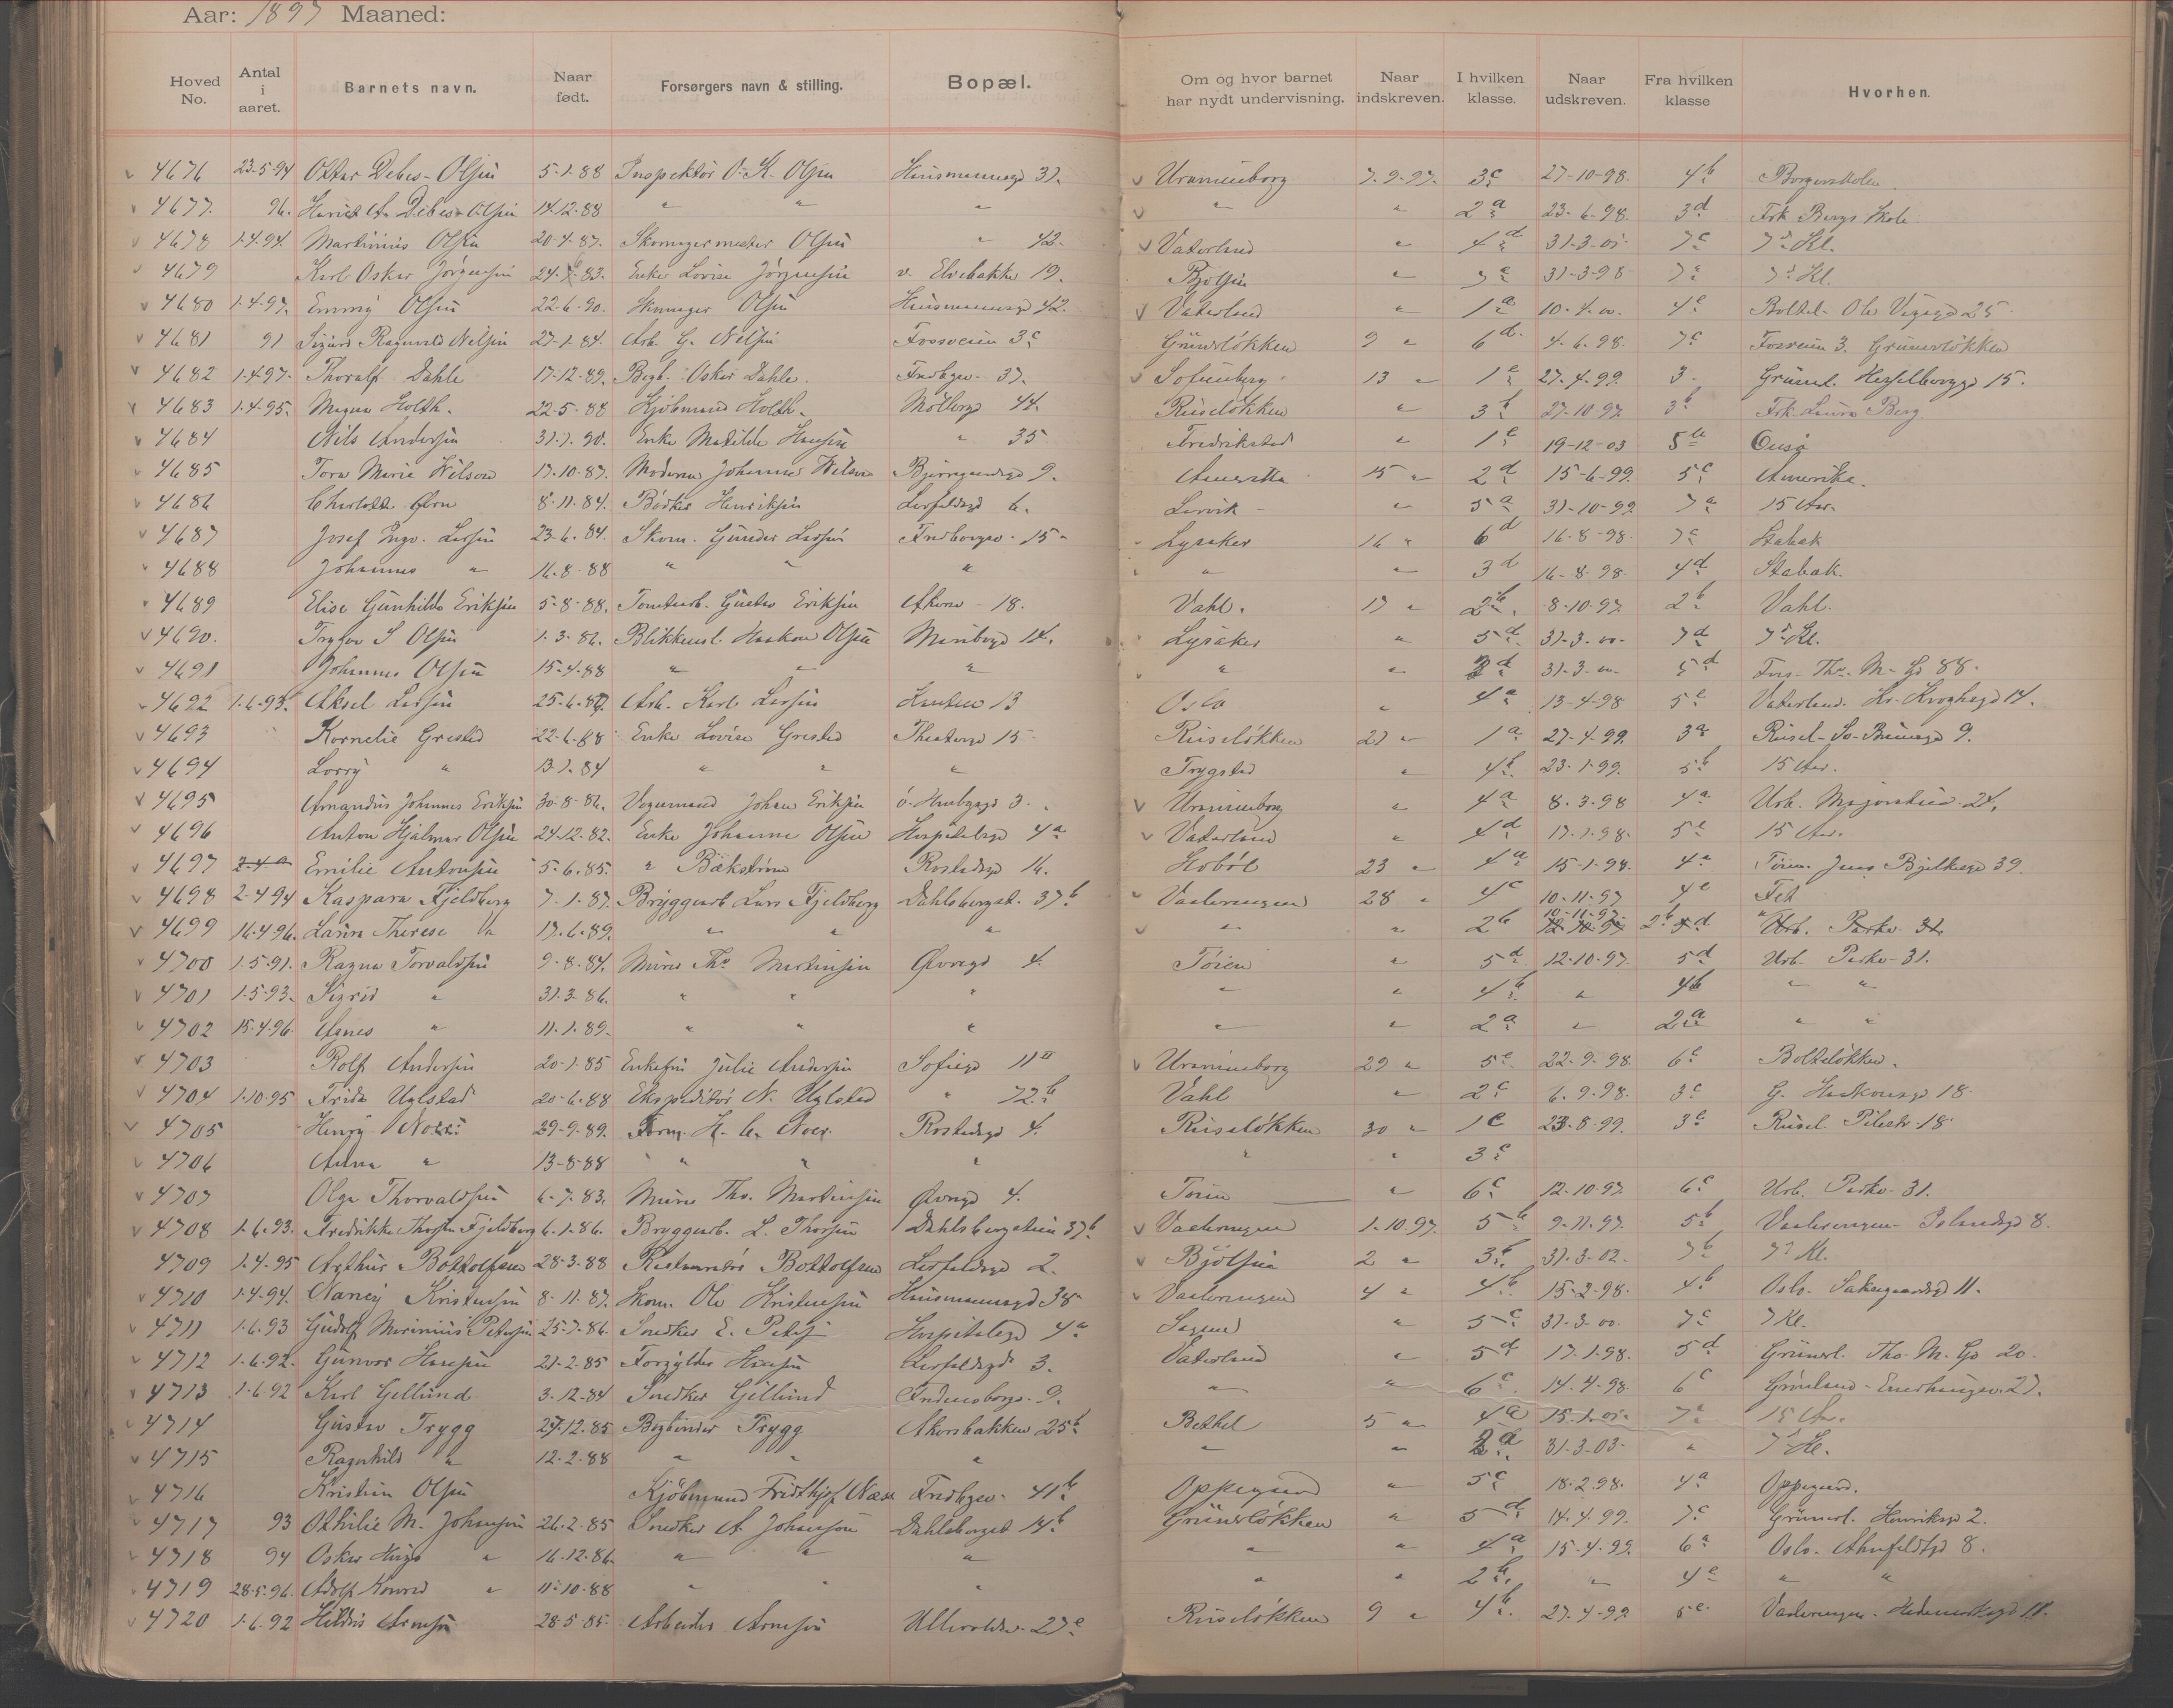 Aar: 1897 Maaned:
Hoved No. Antal i aaret. Barnets navn. Naar født. Forsørgers navn & stilling. Bopæl. Om og hvor barnet har nydt undervisning. Naar indskreven. I hvilken klasse. Naar udskreven. Fra hvilken klasse Hvorhen.
4676 23-5-94 Ottar Debes-Olsen 5-1-88 Inspektör O. K. Olsen Husmannsgd 31. Uranienborg 7-9-97. 3c 27-10-98. 4b Borgerskolen.
4677. 96. Debes-Olsen 14.12.88 " " " " " 2a 23-6-98. 3d Frk Bergs Skole
4678 1-4-94. Martinius Olsen 20-4-87. Skomagermester Olsen " 42. Vaterland " 4d 31-3-01- 7c 7d Kl.
4679 Karl Oskar Jörgensen 24-1-83. Enke Lovise Jörgensen v. Elvebakke 19. Bjölsen " 7c 31-3-98- 7a 7d Kl.
4680 1-4-97. Emmy Olsen 22-6-90. Skomager Olsen Husmannsgd 42. Vaterland " 1a 10-4-00. 4c Boltel- Ole Vigsgd 25
4681 91 Sigurd Ragnvald Nilsen 27-1-84. Arb. G. Nilsen Fossveien 3c Grünerlökken 9 " 6d. 4-6-98. 7c Fossveien 3. Grünerlökken
4682 1-4-97. Thoralf Dahle 17-12-89. Bogb. Oskar Dahle. Fredbgsv. 37. Sofienberg. 13 " 1c 27-4-99. 3- Grünerl. Hesselbergsgd 15.
4683 1-4-95. Magna Holth. 22-5-88 Kjöbmand Holth. Möllergd 44. Ruselökken " 3b 27-10-97. 3b Frk Laura Berg
4684 Nils Andersen 31-1-90. Enke Matilde Hansen " 35 Fredrikstad " 1c 19-12-03 5b Onsö
4685 Tora Marie Wilson 17-10-87. Moderen Johanne Wilson Bjerregaardsgd 9. Amerika 15 " 2d 15-6-99. 5c Amerika.
4686 Charlotte Ørn 8-11-84. Bödker Henriksen Lerfaldsgd 6. Larvik - " 5a 31-10-99 7a 15 Aar.
4687 Josef Ingv. Larsen 23-6-84. Skom. Gunder Larsen Fredborgsv. 15- Lysaker 16 " 6d 16-8-98. 7c Stabæk
4688 Johannes " 16-8-88 " " " " " 3d 16-8-98. 4d Stabæk.
4689 Elise Gunhilda Eriksen 5-8-88. Tomtearb. Gustav Eriksen Akersv. 18. Vahl. 17 " 2b. 8-10-97. 2b Vahl.
4690. Trygve S Olsen 1-3-82. Blikkensl. Haakon Olsen Maribogd 14. Lysaker " 5d 31-3-00- 7d 7d Kl.
4691 Johannes Olsen 15-4-88 " " " " " 2d 31-3-00. 5d Fors- Th. M. Gd 88.
4692 1-6-93. Aksel Larsen 25-6-87. Arb. Karl Larsen 13 Oslo " 4a 13-4-98 5c Vaterland. Kr. Kroghsgd 14.
4693 Kornelie Grested 22-6-88 Enke Lovise Grested Theatergd 15 Ruselökken 21 " 1a 27-4-99. 3a Rusel- So- Bruunsgd 9.
4694 Lorry " 13-1-84 " " " Trygstad " 4b. 23-1-99. 5b 15 Aar.
4695 Amandus Johannes Eriksen 30-8-82. Vognmand Johan Eriksen 3. Uranienborg " 4a 8-3-98 4a Urb. Majorstuen 24.
4696 Anton Hjalmar Olsen 24-12-82. Enke Johanne Olsen Hospitalsgd 4a Vaterland " 4d 17-1-98. 5c 15 Aar.
4697 Emilie Antonsen 5-6-85. " Bækström Rostedsgd 14. Hoböl 23 " 4a 15-1-98. 4a Töien. Jens Bjelkesgd 39.
4698 2-4-94 Kaspara Fjeldberg 7-1-87. Bryggearb. Lars Fjeldberg Dahlsbergst. 37b Vaalerengen 28 " 4c 10-11-97 4c Fet
4699 16-4-96. Laura Therese " 17-6-89. " " " " " 2b 10-11-97. 12-10-97 2b 5d " Urb. Parkv. 31.
4700 1-5-91. Ragna Torvaldsen 9-8-84. Murer Th. Martinsen Øvregd 4. Töien " 5d. 12-10-97. 5d Urb. Parkv. 31.
4701 1-5-93. Sigrid " 31-3-86. " " " " " 4b. " 4b " "
4702 15-4-96. Agnes " 11-1-89. " " " " " 2a " 2a " "
4703 Rolf Andersen 20-1-85 Enkefru Julie Andersen Sofiegd 11 II Uranienborg 29 " 5c. 22-9-98. 6c Boltelökken.
4704 1-10-95 Frida Uglstad 20-6-88 Ekspeditör N. Uglstad " 72b Vahl " 2c 6-9-98. 3c G. Haakonsgd 18
4705 Henry Noss 29-9-89. Form. H. C. Noss. Rostedsgd 4. Ruselökken 30 " 1c 23-8-99. 3c Rusel. Pilestr 18
4706 Anna " 13-8-88 " " " " " 3c
4707 Olga Thorvaldsen 6-7-83. Murer Tho. Martinsen Øvregd 4. Töien " 6c 12-10-97. 6c Urb. Parkv. 31.
4708 1-6-93. Fredrikke Thorsen Fjeldberg 6-1-86. Bryggearb. L. Thorsen Dahlsbergstien 37b Vaalerengen 1-10-97. 5b 9-11-97. 5b Vaalerengen- Islandsgd 8.
4709 1-4-95 Arthur Bottolfsen 28-3-88 Restauratör Bottolfsen Lerfaldsgd 2. Bjölsen 2 " 3b. 31-3-02. 7b 7d Kl.
4710 1-4-94. Nancy Kristensen 8-11-87. Skom. Ole Kristensen Husmannsgd 38 Vaalerengen 4 " 4b. 15-2-98. 4b Oslo. 11.
4711 1-6-93 Gudolf Marinius Petersen 25-7-86. Snedker E. Petersen Hospitalsgd 4a Sagene " 5c 31-3-00. 7c 7 Kl.
4712 1-6-92. Gunvor Hansen 21-2-85 Forgylder Hansen Lerfaldsgd 3. Vaterland " 5d 17-1-98. 5d Grünerl. Tho. M. Gd 20.
4713 1-6-92 Karl Gellund 3-12-84 Snedker Gellund Fredensborgv. 9. " " 6c. 14-4-98. 6c Grönland- Enerhaugsv. 27.
4714 Gustav Trygg 27-12-85 Bogbinder Trygg Akersbakken 25b Bethel 5 " 4a 15-1-01. 7a 15 Aar.
4715 Ragnhild " 12-2-88 " " " " " 2d 31-3-03. " 7d Kl.
4716 Kristian Olsen Kjöbmand Fridthjof Næss Fredbgsv. 41b Oppegaard " 5c 18-2-98. 4a Oppegaard.
4717 93 Othilie M. Johansen 26-2-85 Snedker A. Johansen Dahlsbergst 14b Grünerlökken " 5d 14-4-99. 7c Grünerl. Henriksgd 2.
4718 94 Oskar Hugo " 16-12-86. " " " " " 4a 15-4-99. 6a Oslo. Ahnfeldtsgd 8.
4719 28-5-96. Adolf Konrad " 11-10-88 " " " " " 2b. " 4c " "
4720 1-6-92 Hildur Arnesen 28-5-85. Arbeider Arnesen Ullevoldsv. 27c Ruselökken 9 " 4b. 27-4-99 5c. Vaalerengen- Hedemarksgd 11.